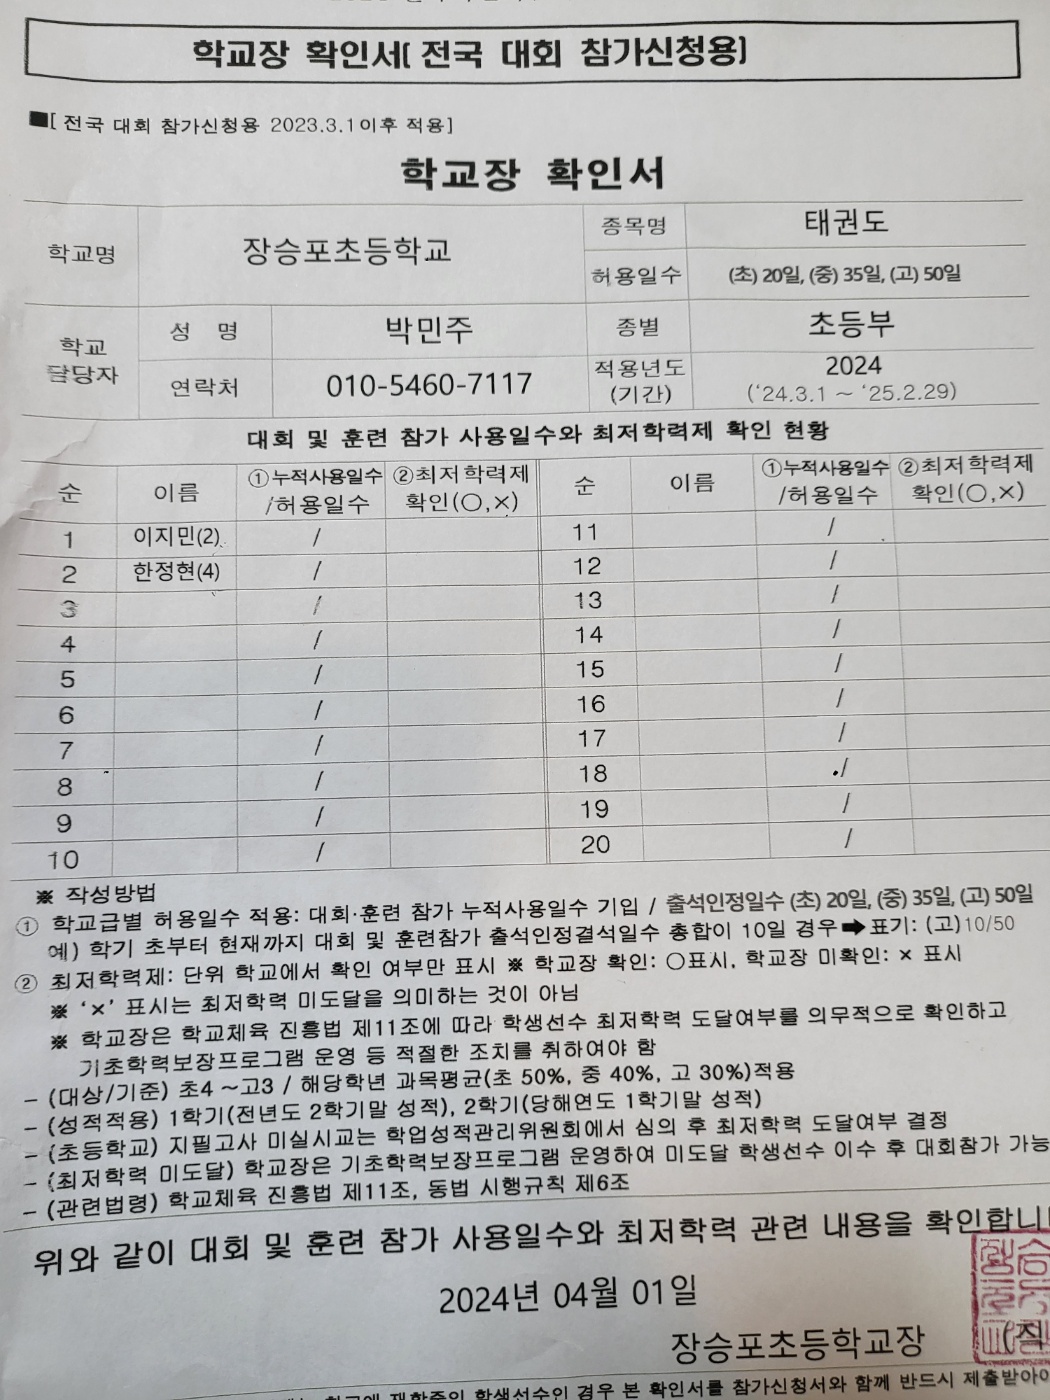 학교장 확인서[ 전국 대회 참가신청용]
■[ 전국 대회 참가신청용 2023.3.1이후 적용]
학교장 확인서
학교명 장승포초등학교 종목명 태권도
허용일수 (초) 20일, (중) 35일, (고) 50일
학교 담당자 성 명 박민주 종별 초등부
연락처 010-5460-7117 적용년도 (기간) 2024 (‘24.3.1 ~ ‘25.2.29)
대회 및 훈련 참가 사용일수와 최저학력제 확인 현황
순 이름 ①누적사용일수 /허용일수 ②최저학력제 확인(○,×) 순 이름 ①누적사용일수 /허용일수 ②최저학력제 확인(○,×)
1 이지민(2) / 11 /
2 한정현(4) / 12 /
3 / 13 /
4 / 14 /
5 / 15 /
6 / 16 /
7 / 17 /
8 / 18 /
9 / 19 /
10 / 20 /
※ 작성방법
① 학교급별 허용일수 적용: 대회·훈련 참가 누적사용일수 기입 / 출석인정일수 (초) 20일, (중) 35일, (고) 50일
예) 학기 초부터 현재까지 대회 및 훈련참가 출석인정결석일수 총합이 10일 경우➡표기: (고)10/50
② 최저학력제: 단위 학교에서 확인 여부만 표시 ※ 학교장 확인: ○표시, 학교장 미확인: × 표시
※ ‘×’ 표시는 최저학력 미도달을 의미하는 것이 아님
※ 학교장은 학교체육 진흥법 제11조에 따라 학생선수 최저학력 도달여부를 의무적으로 확인하고
기초학력보장프로그램 운영 등 적절한 조치를 취하여야 함
– (대상/기준) 초4 ~고3 / 해당학년 과목평균(초 50%, 중 40%, 고 30%)적용
– (성적적용) 1학기(전년도 2학기말 성적), 2학기(당해연도 1학기말 성적)
– (초등학교) 지필고사 미실시교는 학업성적관리위원회에서 심의 후 최저학력 도달여부 결정
– (최저학력 미도달) 학교장은 기초학력보장프로그램 운영하여 미도달 학생선수 이수 후 대회참가 가능
– (관련법령) 학교체육 진흥법 제11조, 동법 시행규칙 제6조
위와 같이 대회 및 훈련 참가 사용일수와 최저학력 관련 내용을 확인합니
2024년 04월 01일
장승포초등학교장 (직
학생선수인 경우 본 확인서를 참가신청서와 함께 반드시 제출받아야